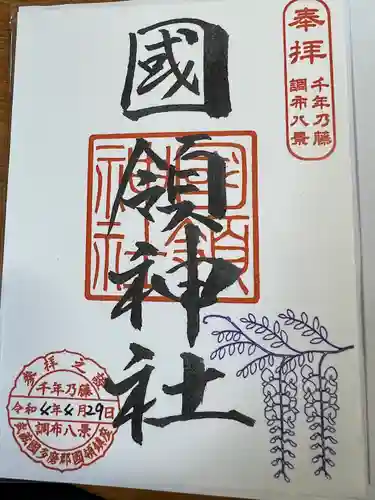 奉拝
千年乃藤
調布八景
國領神社
國領神社
参拝之證
千年乃藤
令和4年4月29日
調布八景
武蔵國多磨郡國領鎮座